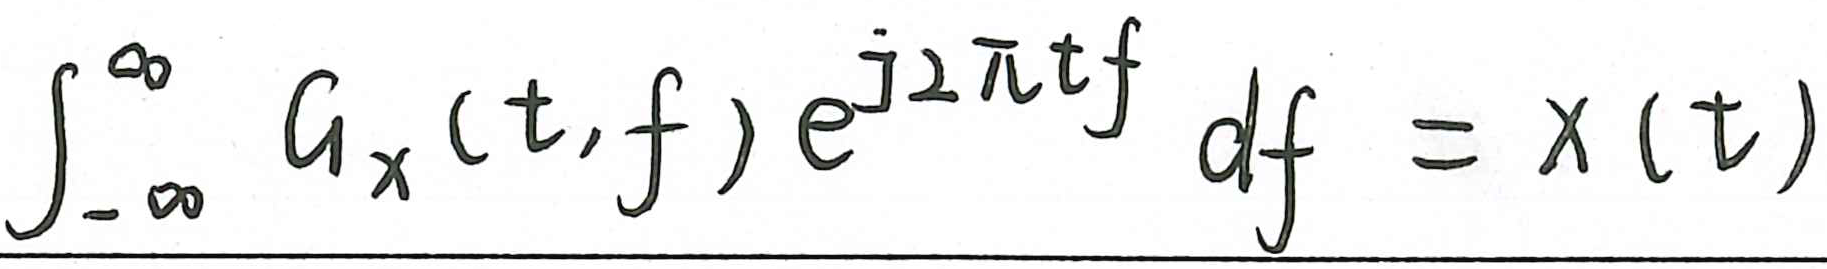 ∫_{-∞}^{∞} G_x(t,f) e^{j2πtf} df = x(t)